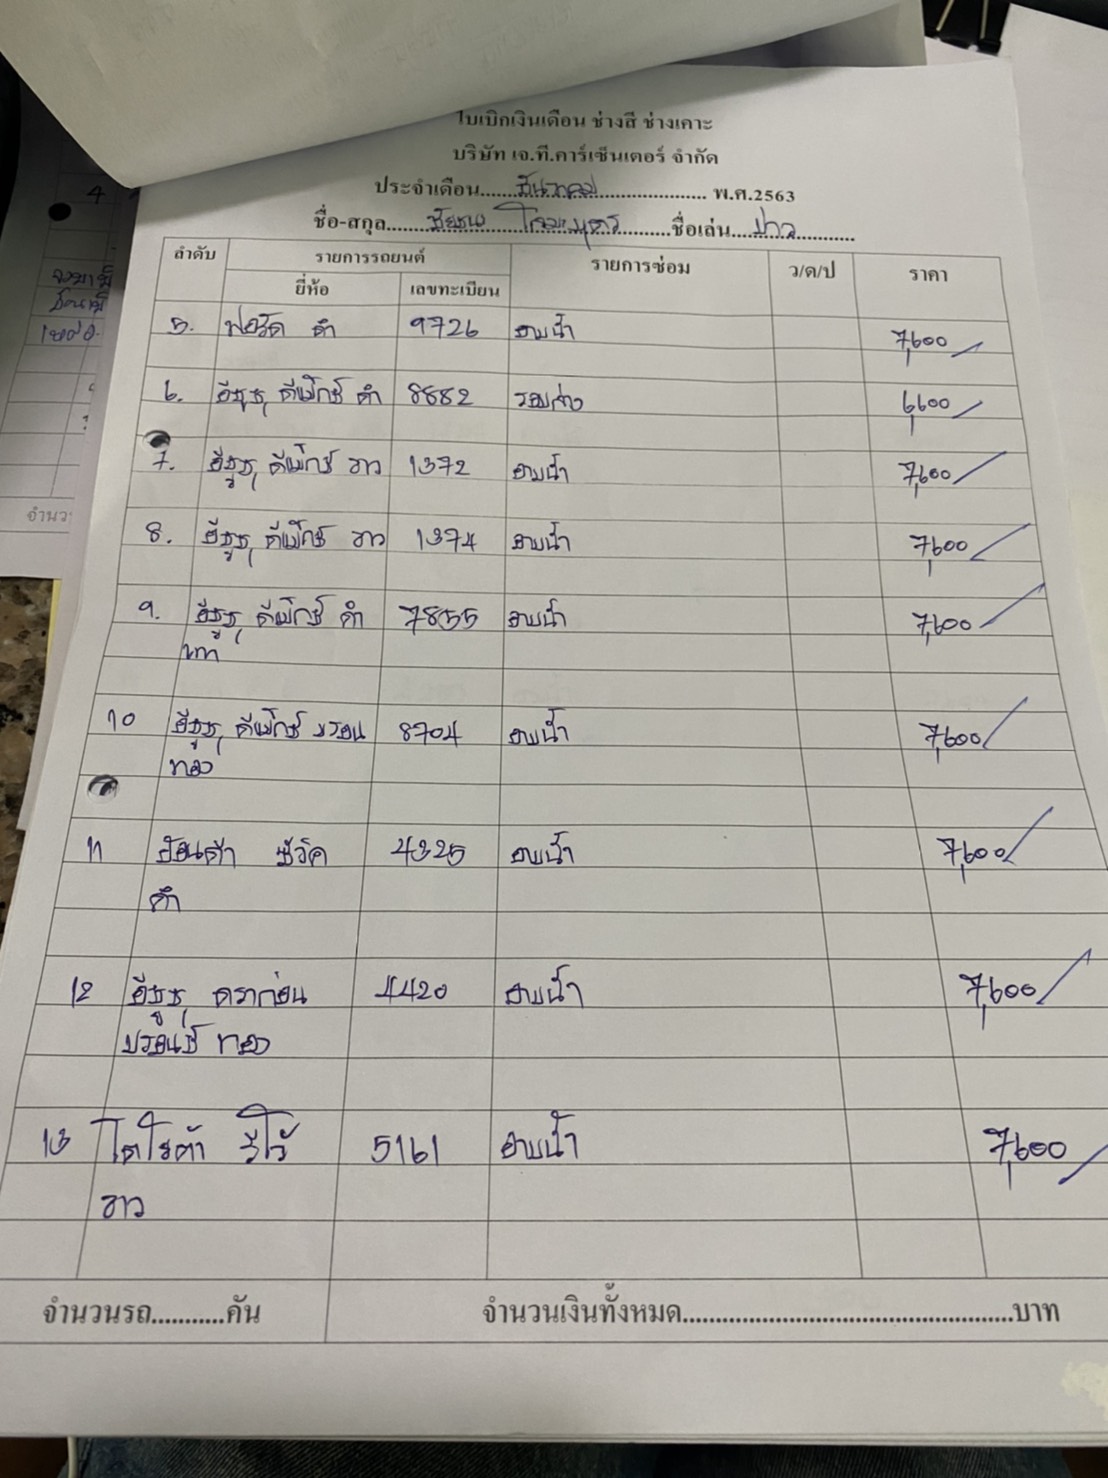 ใบเบิกเงินเดือน ช่างสี ช่างเคาะ
บริษัท เจ.ที.คาร์เซ็นเตอร์ จำกัด
ประจำเดือน.....ธันวาคม..... พ.ศ.2563
ชื่อ-สกุล..........ชื่อเล่น....ขาว....
ลำดับ รายการรถยนต์ รายการซ่อม ว/ด/ป ราคา
ยี่ห้อ เลขทะเบียน
5. ฟอร์ด ดำ 9726 อาบน้ำ 7,600
6. อีซูซุ ดีแม็กซ์ ดำ 8882 รอบล่าง 6,600
7. อีซูซุ ดีแม็กซ์ ขาว 1372 อาบน้ำ 7,600
8. อีซูซุ ดีแม็กซ์ ขาว 1374 อาบน้ำ 7,600
9. อีซูซุ ดีแม็กซ์ ดำ 7855 อาบน้ำ 7,600
เทา
10 อีซูซุ ดีแม็กซ์ บรอน 8704 อาบน้ำ 7,600
ทอง
11 ฮอนด้า ซีวิค 4325 อาบน้ำ 7,600
ดำ
12 อีซูซุ ดราก้อน 4420 อาบน้ำ 7,600
บรอนซ์ ทอง
13 โตโยต้า วีโว้ 5161 อาบน้ำ 7,600
ขาว
จำนวนรถ...........คัน จำนวนเงินทั้งหมด..................................................บาท